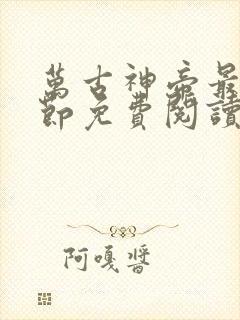 萬古神帝最
節免費閱讀
阿嘎醬